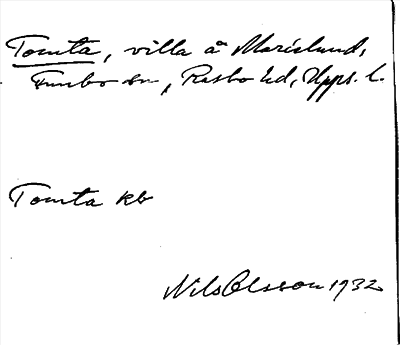 Tomta, villa å Marielund,
Funbo sn, Rasbo hd, Upps. l.
Tomta kb
Nils Olsson 1932